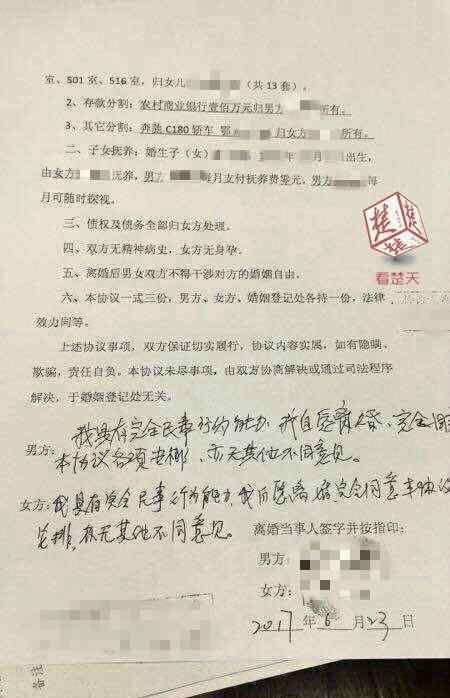 室、501 室、516 室，归女儿（共 13 套）。
2、存款分割：农村商业银行壹佰万元归男方所有。
3、其它分割：奔驰 C180 轿车 鄂归女方所有。
二、子女抚养：婚生子（女）年月出生，
由女方抚养，男方每月支付抚养费零元，男方每
月可随时探视。
三、债权及债务全部归女方处理。
四、双方无精神病史，女方无身孕。
五、离婚后男女双方不得干涉对方的婚姻自由。
六、本协议一式三份，男方、女方、婚姻登记处各持一份，法律
效力同等。
上述协议事项，双方保证切实履行，协议内容实属，如有隐瞒、
欺骗，责任自负。本协议未尽事项，由双方协商解决或通过司法程序
解决，于婚姻登记处无关。
我具有完全民事行为能力，我自愿离婚，完全同
男方：本协议各项安排，亦无其他不同意见。
女方：我具有完全民事行为能力，我自愿离婚完全同意本协议
安排，亦无其他不同意见。
离婚当事人签字并按指印：
男方：
女方：
2017年6月23日
看楚天
楚
备注